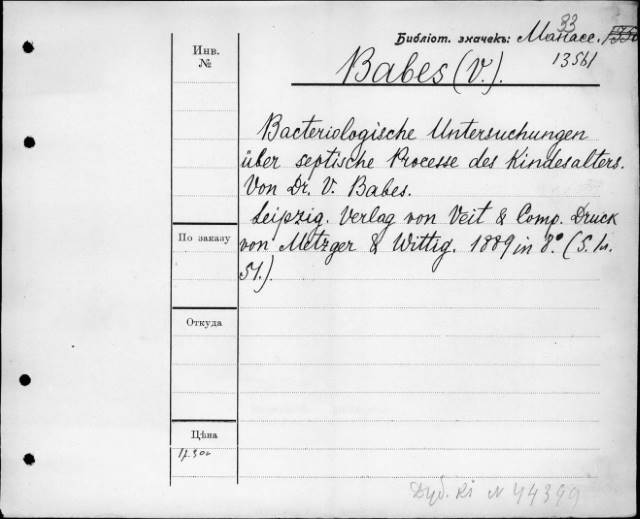 33
Библіот. значекъ: Манасе.
13561
Инв.
№
Babes (V.).
Bacteriologische Untersuchungen
über septische Processe des Kindesalters.
Von Dr. V. Babes.
Leipzig. Verlag von Veit & Comp. Druck
По заказу
von Metzger & Wittig. 1889 in 8.° (S. In.
51.).
Откуда
Цѣна
Дуб. Ki N 44399